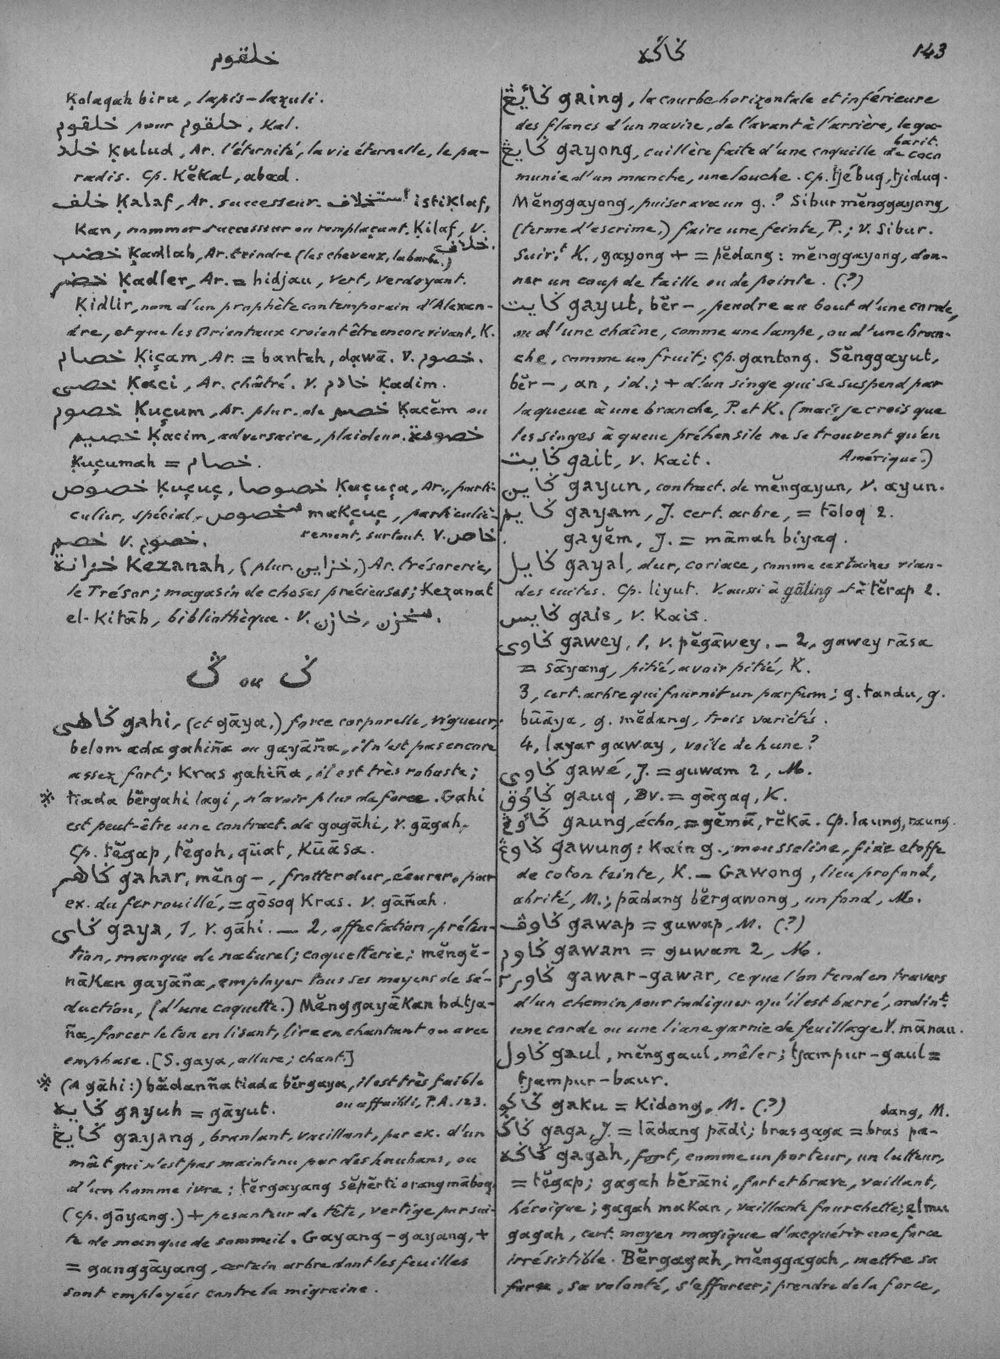 خلقوم
ڬاڬه
143
Ḳolaqah biru, lapis-lazuli.
خلقوم pour حلقوم, Kal.
خلد Ḳulud, Ar. l'éternité, la vie éternelle, le pa-
radis. Cp. Kĕkal, abad.
خلف Ḳalaf, Ar. successeur. استخلاف istiḲlaf,
Kan, nommer successeur ou remplaçant. Ḳilaf, V.
خلاف.
خضب Ḳadlab, Ar. teindre (les cheveux, la barbe.)
خضر Ḳadler, Ar. = hidjau, vert, verdoyant.
Ḳidlir, nom d'un prophète contemporain d'Alexan-
dre, et que les Orientaux croient être encore vivant, K.
خصام Ḳiçam, Ar. = bantah, dạwā. V. خصوم.
خصى Ḳaci, Ar. châtré. V. خادم Ḳadim.
خصوم Ḳuçum, Ar. plur. de خصم Ḳacĕm ou
خصيم Ḳacim, adversaire, plaideur. خصومة
Ḳuçumah = خصام.
خصوص Ḳuçuç, خصوصا Ḳuçuça, Ar., parti-
culier, spécial. مخصوص maḲçuç, particuliè-
rement, surtout. V. خاص.
خصم V. خصوم.
خزانة Kezanah, (plur. خزاين,) Ar. trésorerie,
le Trésor; magasin de choses précieuses; Kezanat
el-Kitāb, bibliothèque. V. خازن, مخزن.
ڬ ou ݢ
ڬاهى gahi, (et gāya,) force corporelle, vigueur;
belom ada gahiña ou gayāña, il n'est pas encore
assez fort; Kras gahiña, il est très robuste;
※ tiada bĕrgahi lagi, n'avoir plus de force. Gahi
est peut-être une contract. de gagāhi, V. gāgah.
Cp. tĕgap, tĕgoh, qūat, Kūāsa.
ڬاهر gahar, mĕng-, frotter dur, écurer, par
ex. du fer rouillé, = gōsoq Kras. V. gāñah.
ڬاى gaya, 1, V. gāhi. — 2, affectation, préten-
tion, manque de naturel; coquetterie; mĕngĕ-
nāKan gayāña, employer tous ses moyens de sé-
duction, (d'une coquette.) MĕnggayāKan batja-
ña, forcer le ton en lisant, lire en chantant ou avec
emphase. [S. gaya, allure; chant.]
※ (A gāhi:) bādanña tiada bĕrgaya, il est très faible
ou affaibli, P.A. 123.
ڬايه gayuh = gāyut.
ڬايڠ gayang, branlant, vacillant, par ex. d'un
mât qui n'est pas maintenu par des haubans, ou
d'un homme ivre; tĕrgayang sĕpĕrti orang māboq,
(cp. gōyang.) + pesanteur de tête, vertige par sui-
te de manque de sommeil. Gayang-gayang, +
= ganggāyang, certain arbre dont les feuilles
sont employées contre la migraine.
ڬأيڠ gaing, la courbe horizontale et inférieure
des flancs d'un navire, de l'avant à l'arrière, le ga-
barit.
ڬايڠ gayong, cuillère faite d'une coquille de coco
munie d'un manche, une louche. Cp. tjébuq, tjiduq.
Mĕnggayong, puiser avec un g.? Sibur mĕnggayong,
(terme d'escrime,) faire une feinte, P.; V. Sibur.
Suiv.t K., gayong + = pĕdang: mĕnggayong, don-
ner un coup de taille ou de pointe. (?)
ڬايت gayut, bĕr-, pendre au bout d'une corde,
ou d'une chaîne, comme une lampe, ou d'une bran-
che, comme un fruit; Cp. gantong. Sĕnggayut,
bĕr-, an, id.; + d'un singe qui se suspend par
la queue à une branche, P. et K. (mais je crois que
les singes à queue préhensile ne se trouvent qu'en
Amérique.)
ڬايت gait, V. Kait.
ڬاين gayun, contract. de mĕngayun, V. ayun.
ڬايم gayam, J. cert. arbre, = tōloq 2.
gayĕm, J. = māmah biyaq.
ڬايل gayal, dur, coriace, comme certaines vian-
des cuites. Cp. liyut. V. aussi à gāling et à tĕrap 2.
ڬايس gais, V. Kais.
ڬاوى gawey, 1, V. pĕgāwey. — 2, gawey rāsa
= sāyang, pitié, avoir pitié, K.
3, cert. arbre qui fournit un parfum; g. tandu, g.
būāya, g. mĕdang, trois variétés.
4, layar gaway, voile de hune?
ڬاوى gawé, J. = guwam 2, M.
ڬاوق gauq, Bv. = gāgaq, K.
ڬاوڠ gaung, écho, = gĕmā, rĕkā. Cp. laung, raung.
ڬاوڠ gawung: Kain g., mousseline, fine étoffe
de coton teinte, K. — Gawong, lieu profond,
abrité, M.; pādang bĕrgawong, un fond, M.
ڬاوڤ gawap = guwap, M. (?)
ڬاوم gawam = guwam 2, M.
ڬاور٢ gawar-gawar, ce que l'on tend en travers
d'un chemin pour indiquer qu'il est barré, ordint.
une corde ou une liane garnie de feuillage. V. mānau.
ڬاول gaul, mĕnggaul, mêler; tjampur-gaul =
tjampur-baur.
ڬاكو gaku = Kidang, M. (?)
dang, M.
ڬاڬ gaga, J. = lādang pādi; bras gaga = bras pa-
ڬاڬه gagah, fort, comme un porteur, un lutteur,
= tĕgap; gagah bĕrāni, fort et brave, vaillant,
héroïque; gagah maKan, vaillante fourchette; elmu
gagah, cert. moyen magique d'acquérir une force
irrésistible. Bĕrgagah, mĕnggagah, mettre sa
force, sa volonté, s'efforcer; prendre de la force,